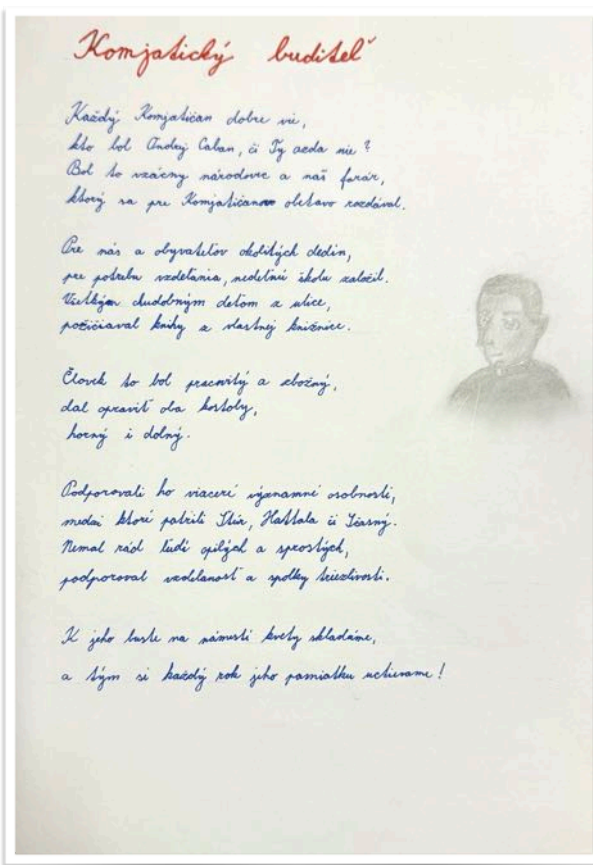 Komjatický buditeľ
Každý Komjatičan dobre vie,
kto bol Andrej Caban, či Ty azda nie?
Bol to vzácny národovec a náš farár,
ktorý sa pre Komjatičanov obetavo rozdával.
Pre nás a obyvateľov okolitých dedín,
pre potrebu vzdelania, nedeľnú školu založil.
Všetkým chudobným deťom z ulice,
požičiaval knihy z vlastnej knižnice.
Človek to bol pracovitý a zbožný,
dal opraviť oba kostoly,
horný i dolný.
Podporovali ho viaceré významné osobnosti,
medzi ktoré patrili Štúr, Hattala či
Nemal rád ľudí opilých a sprostých,
podporoval vzdelanosť a spolky triezlivosti.
K jeho buste na námestí kvety skladáme,
a tým si každý rok jeho pamiatku uctievame!